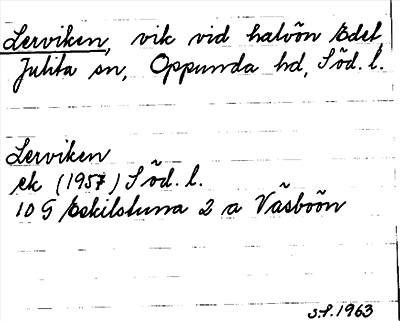 Lerviken, vik vid halvön Edet
Julita sn, Oppunda hd, Söd. l.
Lerviken
ek (1957) Söd. l.
10 G Eskilstuna 2 a Väsböön
s.f. 1963